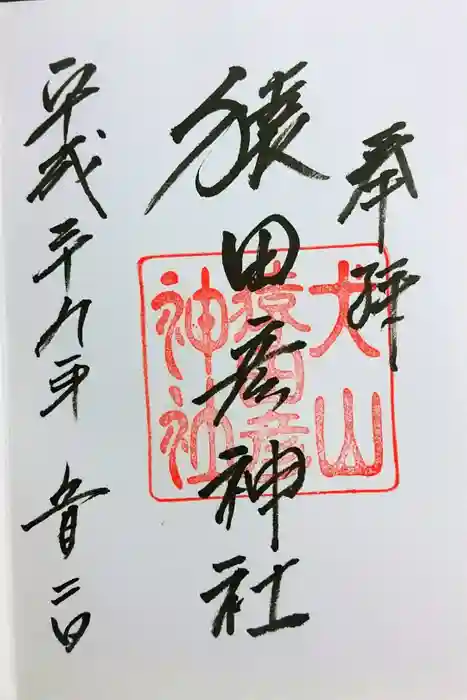 奉拝
犬山
猿田彦
神社
猿田彦神社
平成二十八年 五月二日